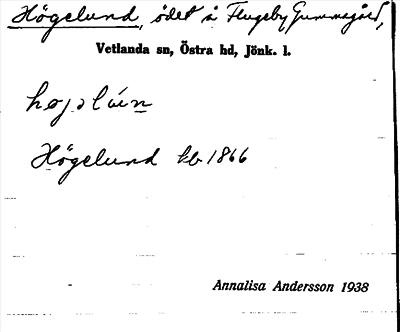 Högelund, ödet å Flugeby Gummegård,
Vetlanda sn, Östra hd, Jönk. l.
Högelund kb 1866
Annalisa Andersson 1938